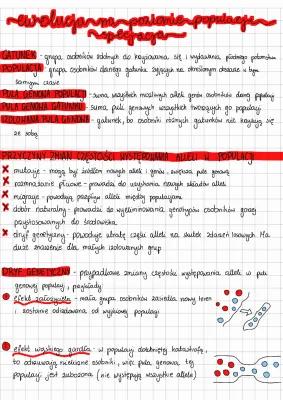 ewolucja na poziomie populacji
specjacja
GATUNEK - grupa osobników zdolnych do krzyżowania się i wydawania płodnego potomstwa
POPULACJA - grupa osobników danego gatunku żyjących na określonym obszarze w tym
samym czasie
PULA GENOWA POPULACJI - suma wszystkich możliwych alleli genów osobników danej populacji
PULA GENOWA GATUNKU - suma puli genowych wszystkich tworzących go populacji
IZOLOWANA PULA GENOWA - gatunek, bo osobniki różnych gatunków nie krzyżują się
ze sobą
PRZYCZYNY ZMIAN CZĘSTOŚCI WYSTĘPOWANIA ALLELI W POPULACJI
mutacje - mogą być źródłem nowych alleli i genów, zwiększa pulę genową
rozmnażanie płciowe - prowadzi do uzyskania nowych układów alleli
migracje - powodują przepływ alleli między populacjami
dobór naturalny - prowadzi do wyeliminowania genotypów osobników gorzej
przystosowanych do środowiska
dryf genetyczny - powoduje utratę części alleli na skutek zdarzeń losowych. Ma
duże znaczenie dla małych izolowanych grup
DRYF GENETYCZNY - przypadkowe zmiany częstości występowania alleli w puli
genowej populacji, przykłady:
efekt założyciela - mała grupa osobników zasiedla nowy teren
i zostanie odizolowana od wyjściowej populacji
efekt wąskiego gardła - w populacji dotkniętej katastrofą,
to odtwarzają nieliczne osobniki, więc pula genowa tej
populacji jest zubożona (nie występują wszystkie allele)